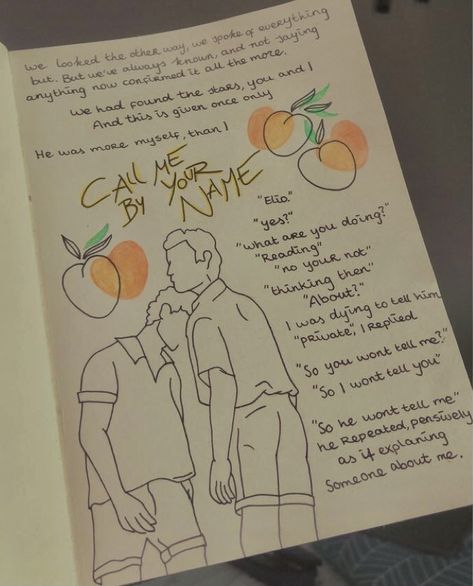 we looked the other way, we spoke of everything
but. But we've always known, and not saying
anything now confirmed it all the more.
We had found the stars, you and I
And this is given once only
He was more myself, than I
CALL ME
BY YOUR
NAME
"Elio."
"yes?"
"what are you doing?"
"Reading"
"no your not"
"thinking then"
"About?"
I was dying to tell him
"private", I replied
"So you wont tell me?"
"So I wont tell you"
"So he wont tell me"
he repeated, pensively
as if explaning
someone about me.